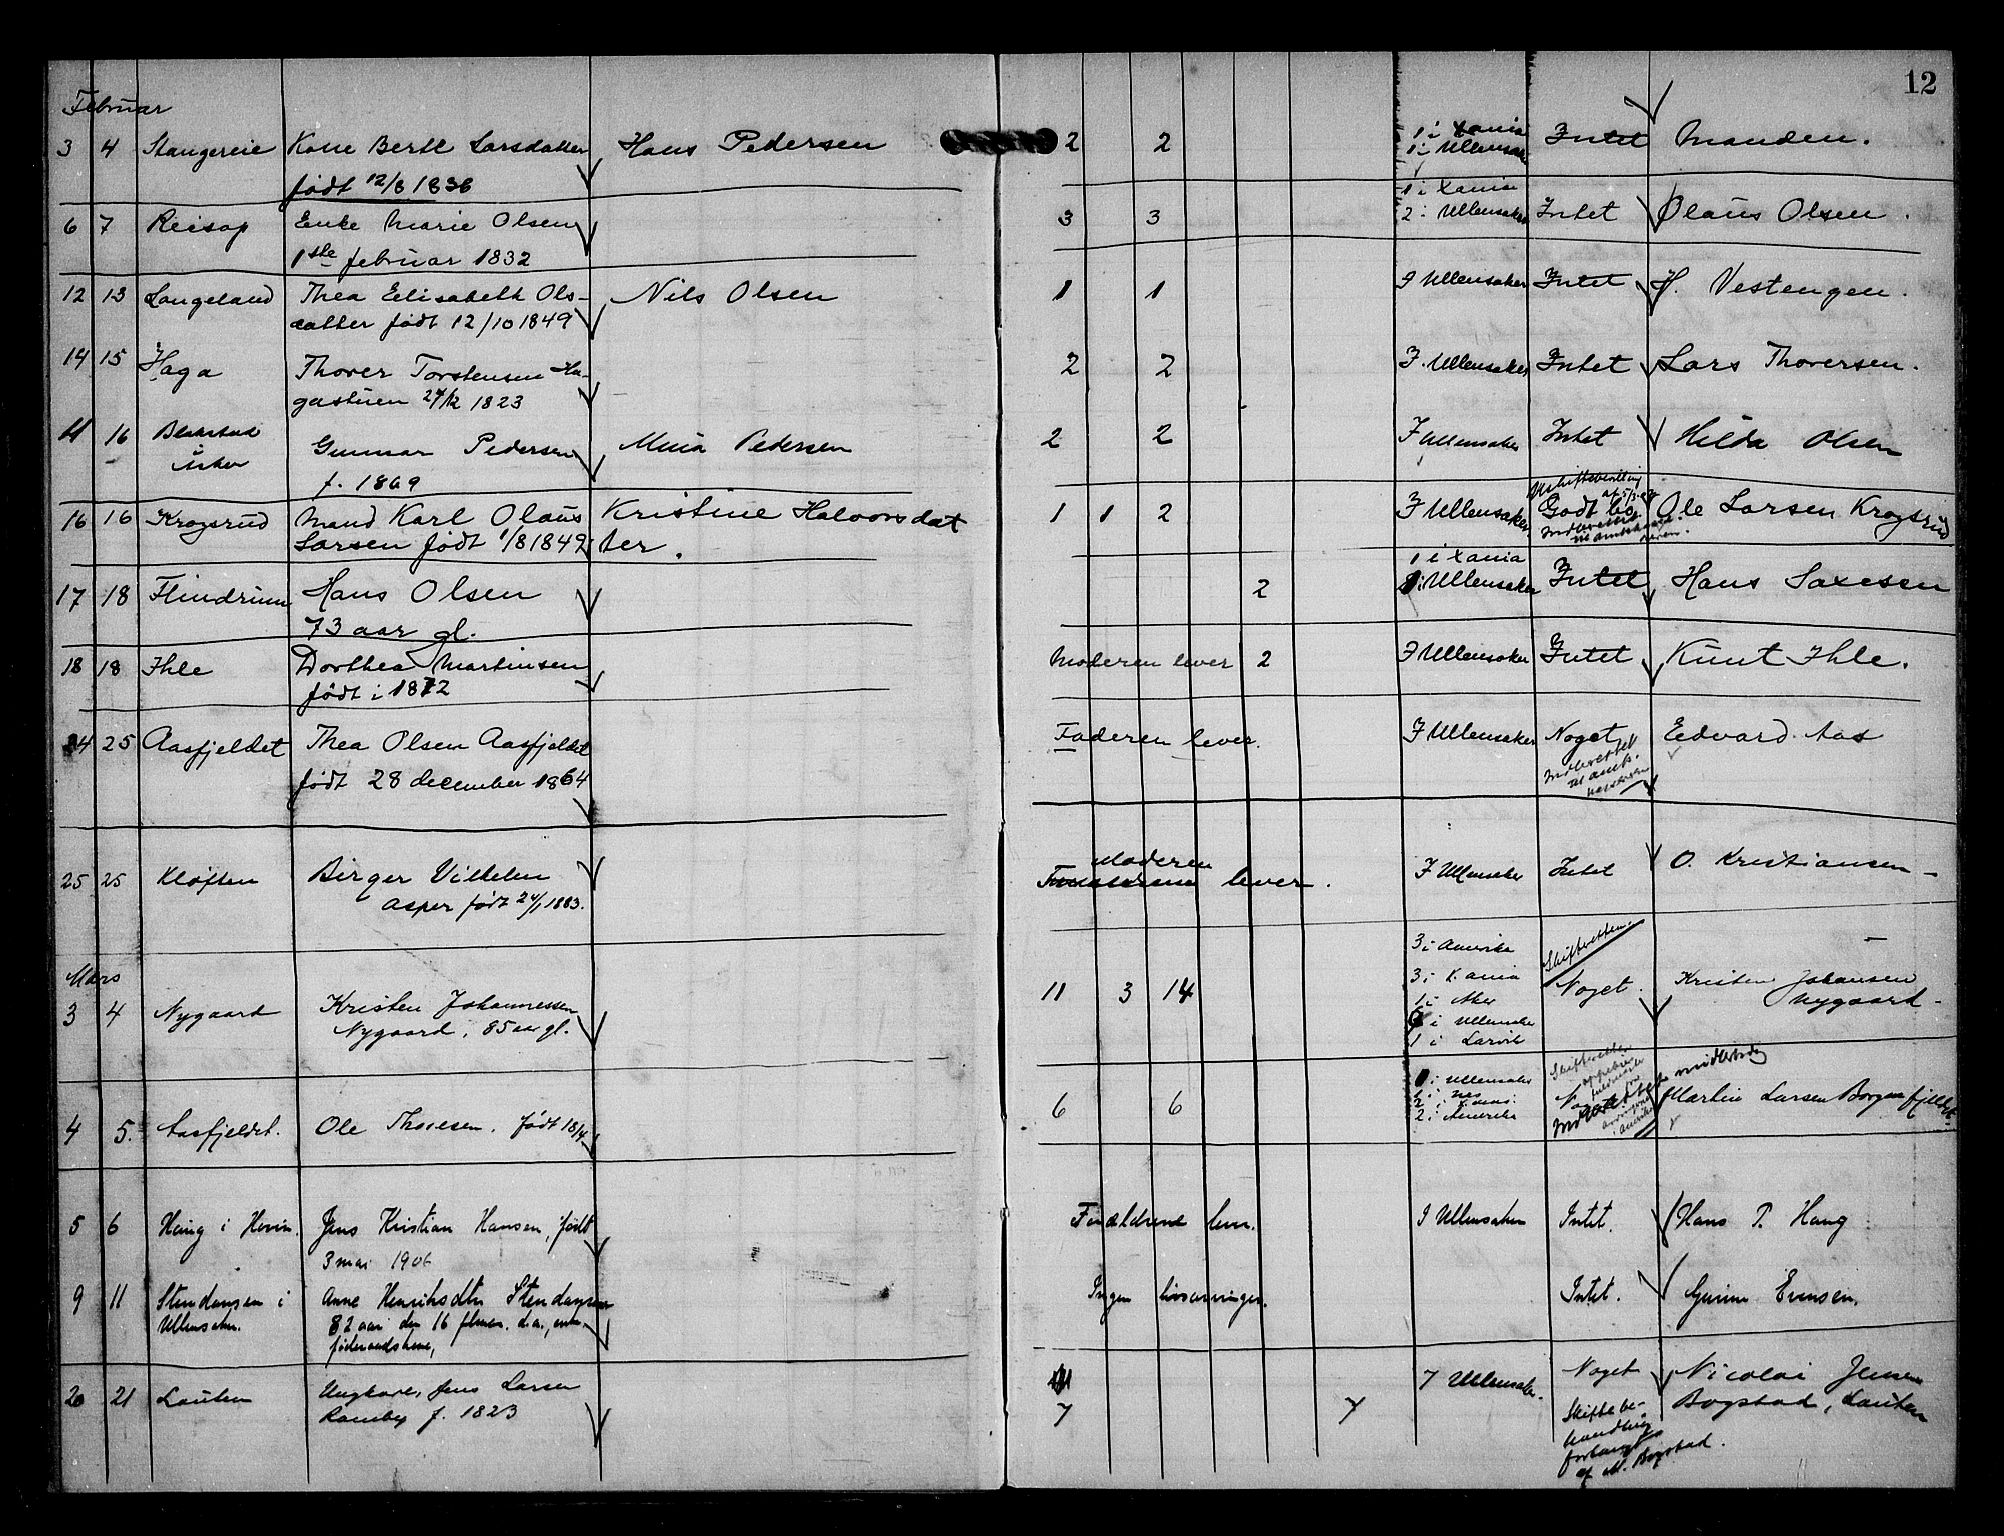 12
Februar
3 4 Stangereie Kone Berte Larsdatter Hans Pedersen 2 2 1 i Xania Intet Manden.
født 12/8 1836 1 i Ullensaker
1 i Xania
6 7 Reisop Enke Marie Olsen 3 3 2 i Ullensaker Intet Olaus Olsen.
1ste februar 1832
12 13 Langeland Thea Elisabeth Ols- Nils Olsen 1 1 I Ullensaker Intet H. Vestengen.
datter født 12/10 1849
14 15 Haga Thorer Torstensen Ha- 2 2 I Ullensaker Intet Lars Thoresen.
gastuen 24/12 1823
16 Gunnar Pedersen Mina Pedersen 2 2 I Ullensaker Intet Hilda Olsen
f. 1869
16 16 Krogsrud Mand Karl Olaus Kristine Halvorsdat 1 1 2 I Ullensaker Godt bo Ole Larsen Krogsrud
Larsen født 1/8 1849 ter.
1 i Xania
17 18 Flindrum Hans Olsen 2 i Ullensaker Intet Hans Saxesen
73 aar gl.
18 18 Ihle Dorthea Martinsen Moderen lever 2 I Ullensaker Intet Knut Ihle.
født i 1872
24 25 Aasfjeldet Thea Olsen Aasfjeldet Faderen lever. I Ullensaker Noget Edvard Aas
født 28 december 1864 Indberettet
til amts.
Moderen
25 25 Kløften Birger Vilhelm lever. I Ullensaker Intet O. Kristiansen
Asper født 24/1 1883.
3 i Amerika Skifteretten.
Mars
3 i Xania
3 4 Nygaard Kristen Johannessen 11 3 14 1 i Aker Noget. Kristen Johansen
Nygaard, 85 aar gl. i Ullensaker Nygaard
1 i Larvik
i Ullensaker
4 5. Aasfjeldet. Ole Thoresen. født 6 6 Noget Martin Larsen Borgenfjeldet
2 i Amerika
5 6 Haug i Hovin. Jens Kristian Hansen, født Forældrene lever. I Ullensaker Intet. Hans P. Haug
3 mai 1906
9 11 Stendansen i Anne Henriksdtr. Stendansen Ingen livsarvinger. Intet. Evensen.
Ullensaker. 82 aar den 16 d.a., enke,
føderaadskone,
20 21 Lauten Ungkarl, Jens Larsen 7 7 I Ullensaker. Noget Nicolai Jensen
Ramby f. 1823 Skiftebe- Bogstad, Lauten
handling
forlangt
af M. Bogstad.